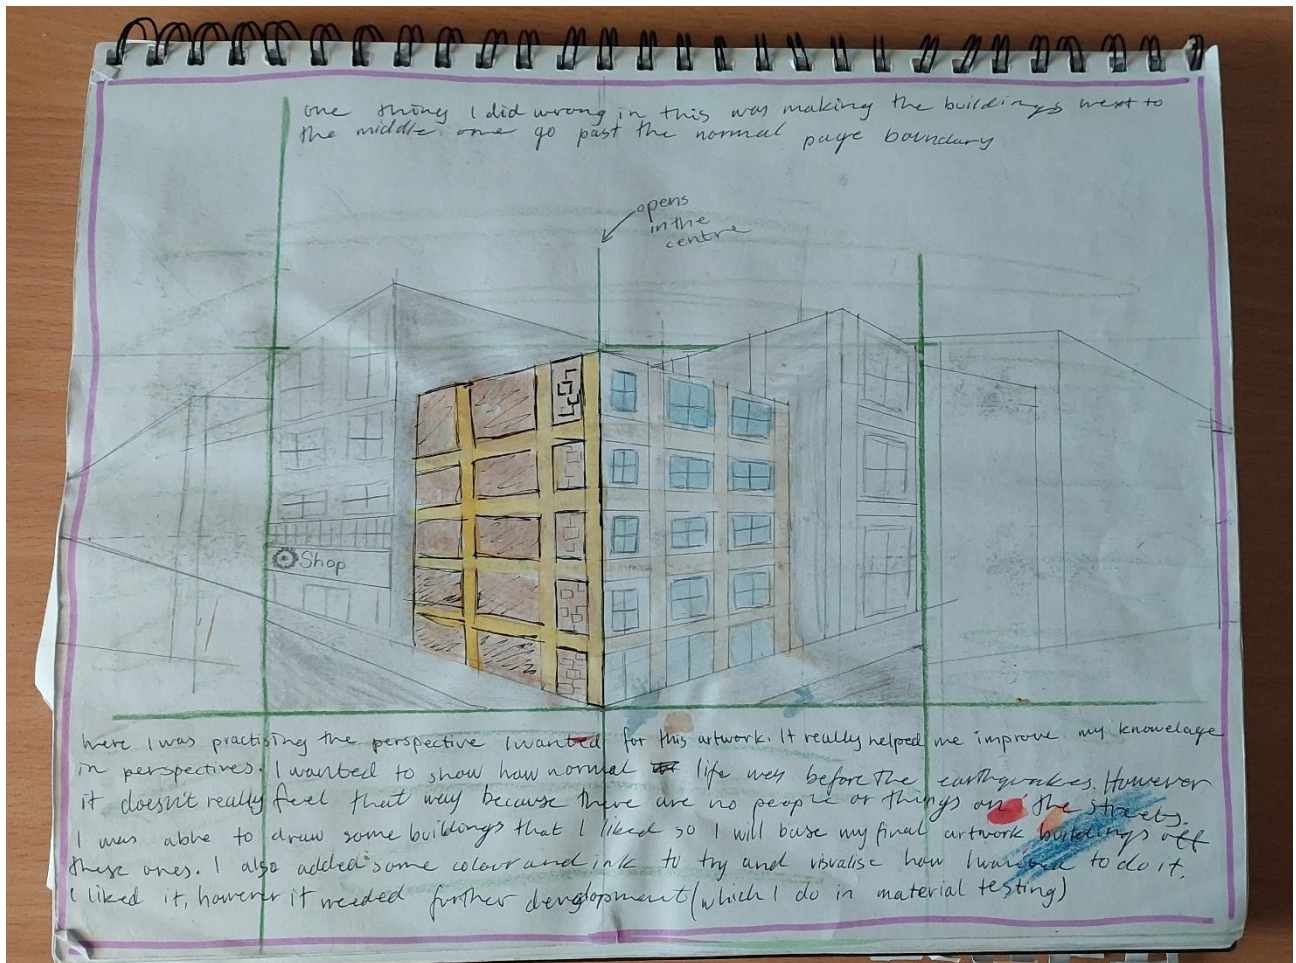 one thing I did wrong in this was making the buildings next to
the middle one go past the normal page boundary
opens
in the
centre
Shop
here I was practising the perspective I wanted for this artwork. It really helped me improve my knowelage
in perspectives. I wanted to show how normal life was before the earthquakes. However
it doesn't really feel that way because there are no people or things on the streets.
I was abhe to draw some buildings that I liked so I will base my final artwork buildings off
these ones. I also added some colour and ink to try and visualise how I wanted to do it.
I liked it, however it needed further development (which I do in material testing)